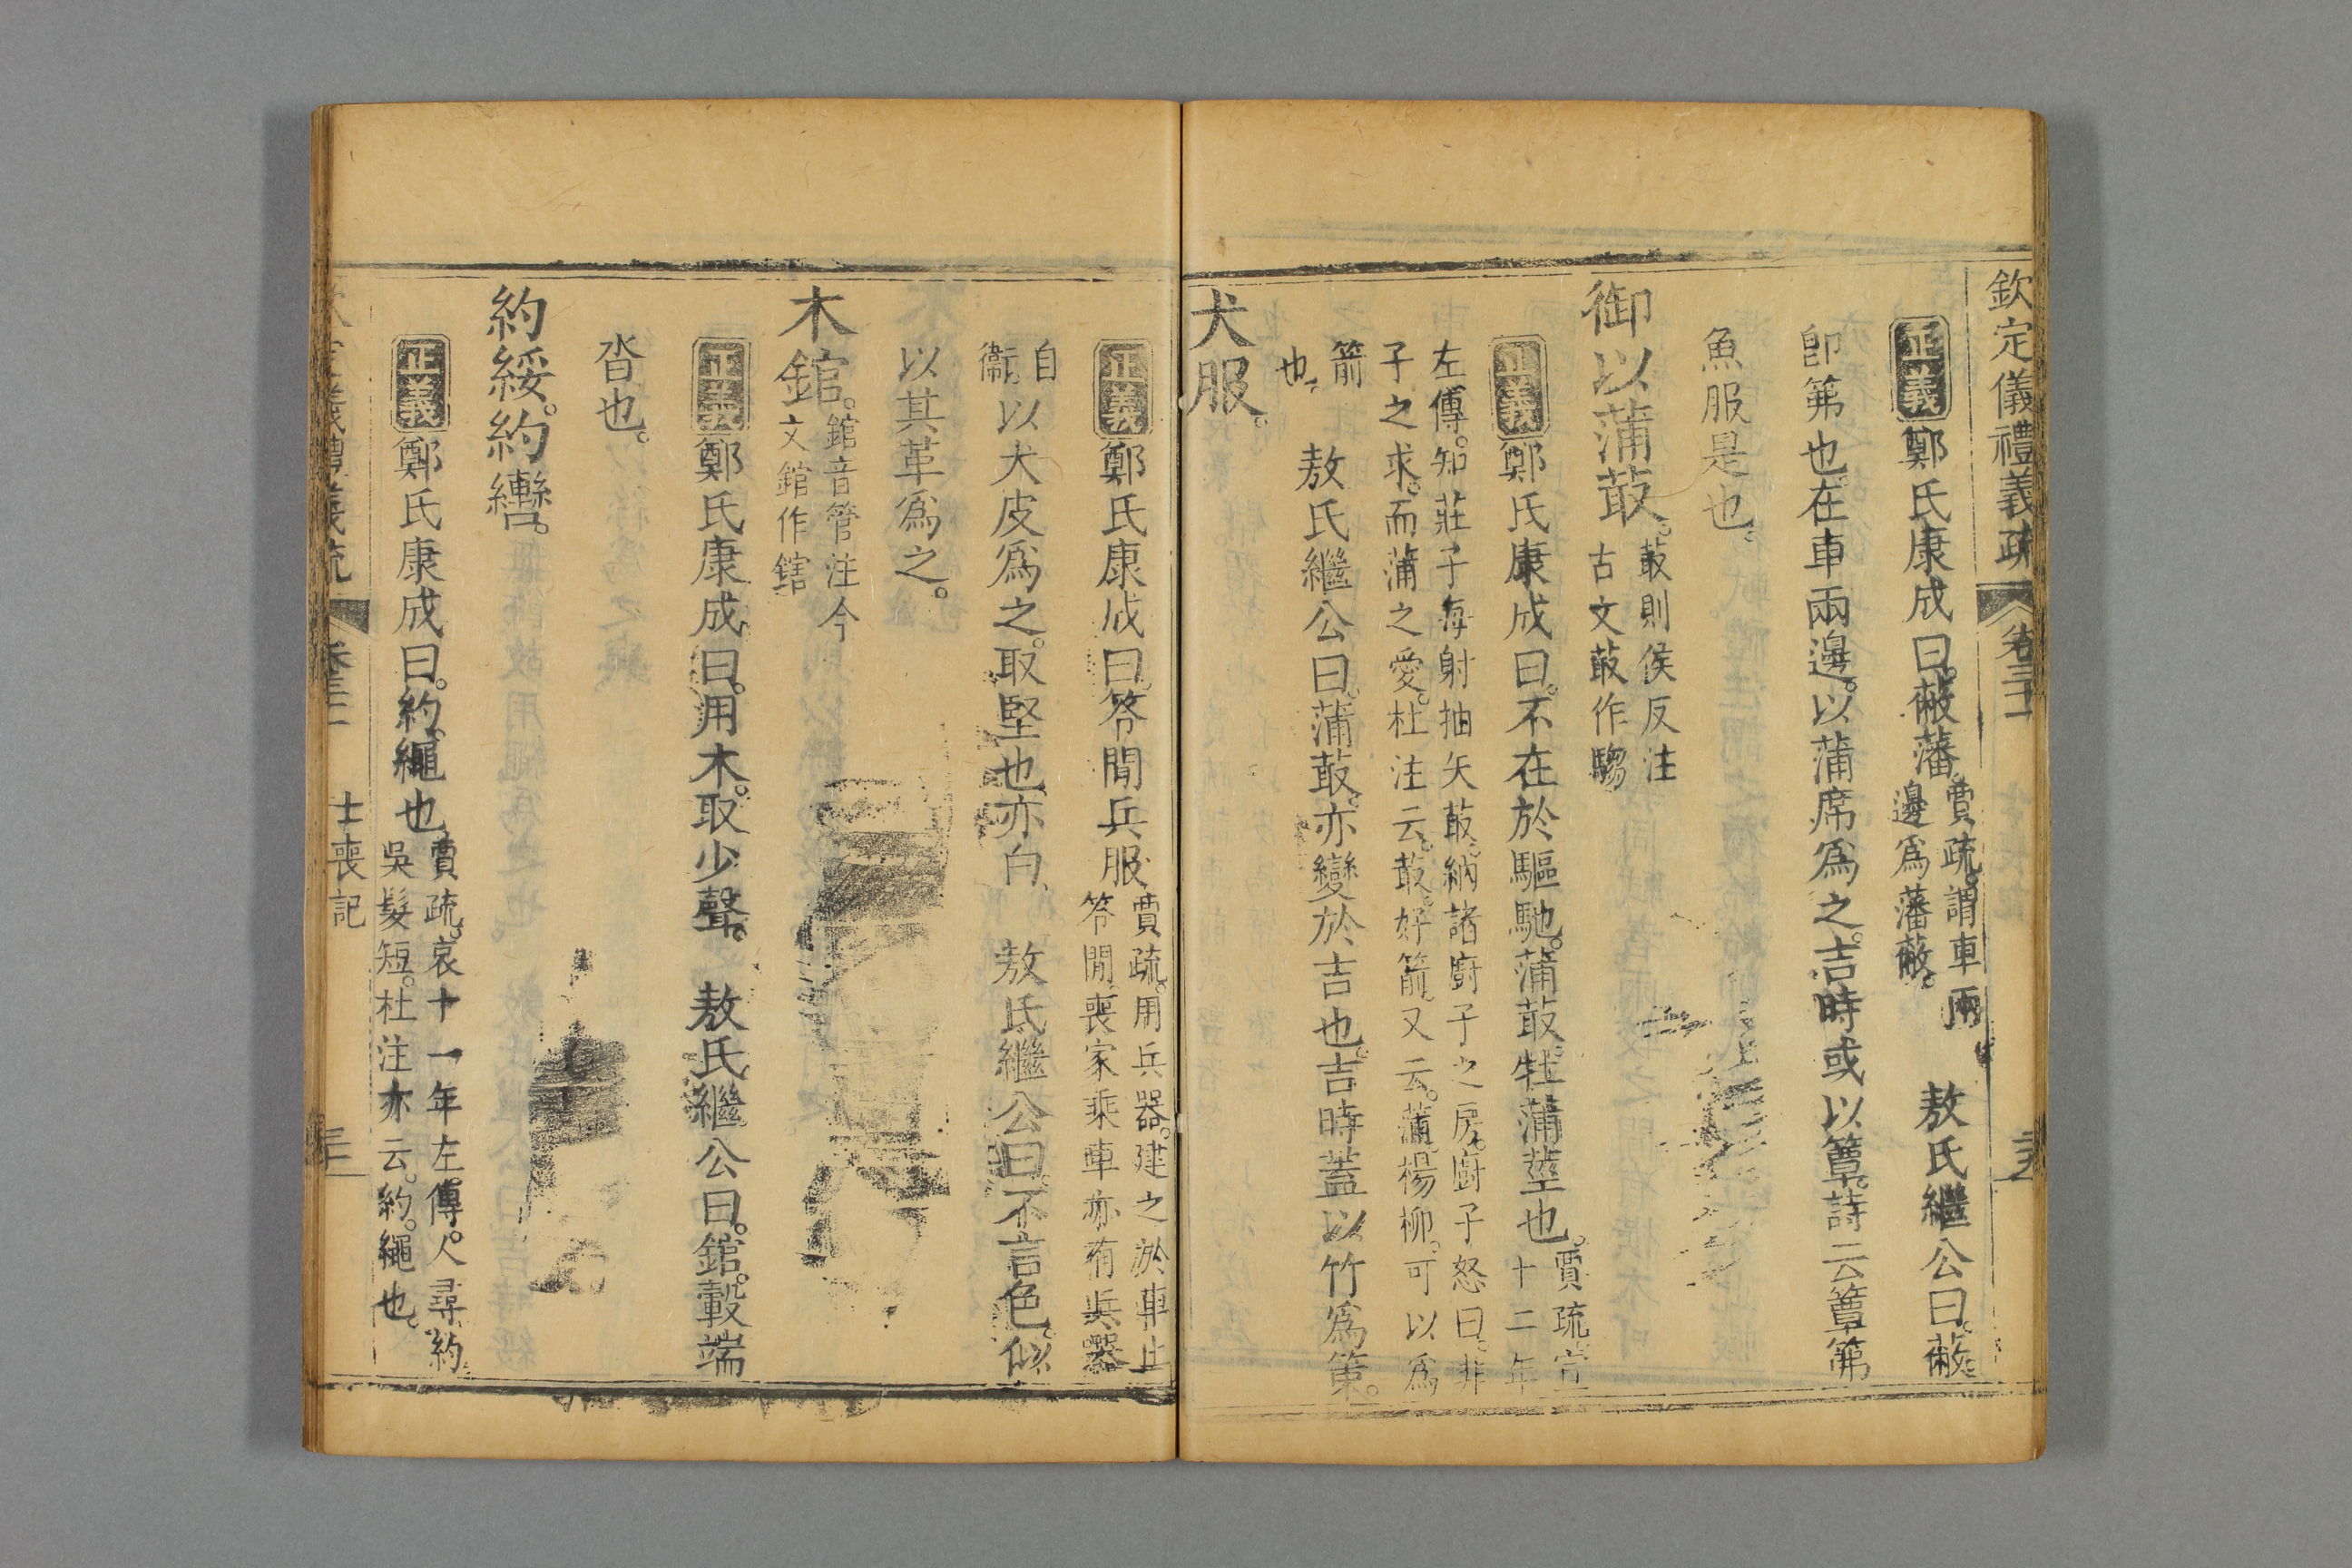 欽定儀禮義疏 卷三十一
正義鄭氏康成曰。蔽藩。賈疏。謂車兩邊爲藩蔽。 敖氏繼公曰。蔽。
卽笰也。在車兩邊。以蒲席爲之。吉時或以簟。詩云簟笰
魚服是也。
御以蒲菆。菆則侯反注古文菆作騶
正義鄭氏康成曰。不在於驅馳。蒲菆。牡蒲莖也。賈疏。宣十二年
左傳。知莊子每射抽矢菆。納諸廚子之房。廚子怒曰。非
子之求。而蒲之愛。杜注云。菆。好箭。又云。蒲。楊柳。可以爲
箭也。 敖氏繼公曰。蒲菆。亦變於吉也。吉時蓋以竹爲策。
犬服。
正義鄭氏康成曰。笭閒兵服。賈疏。用兵器。建之於車上笭閒。喪家乘車亦有兵器
自衞。以犬皮爲之。取堅也。亦白。 敖氏繼公曰。不言色。似
以其革爲之。
木錧。錧音管注今文錧作鎋
正義鄭氏康成曰。用木。取少聲。 敖氏繼公曰。錧。轂端
沓也。
約綏。約轡。
正義鄭氏康成曰。約。繩也。賈疏。哀十一年左傳。人尋約。吳髮短。杜注亦云。約。繩也。
士喪記